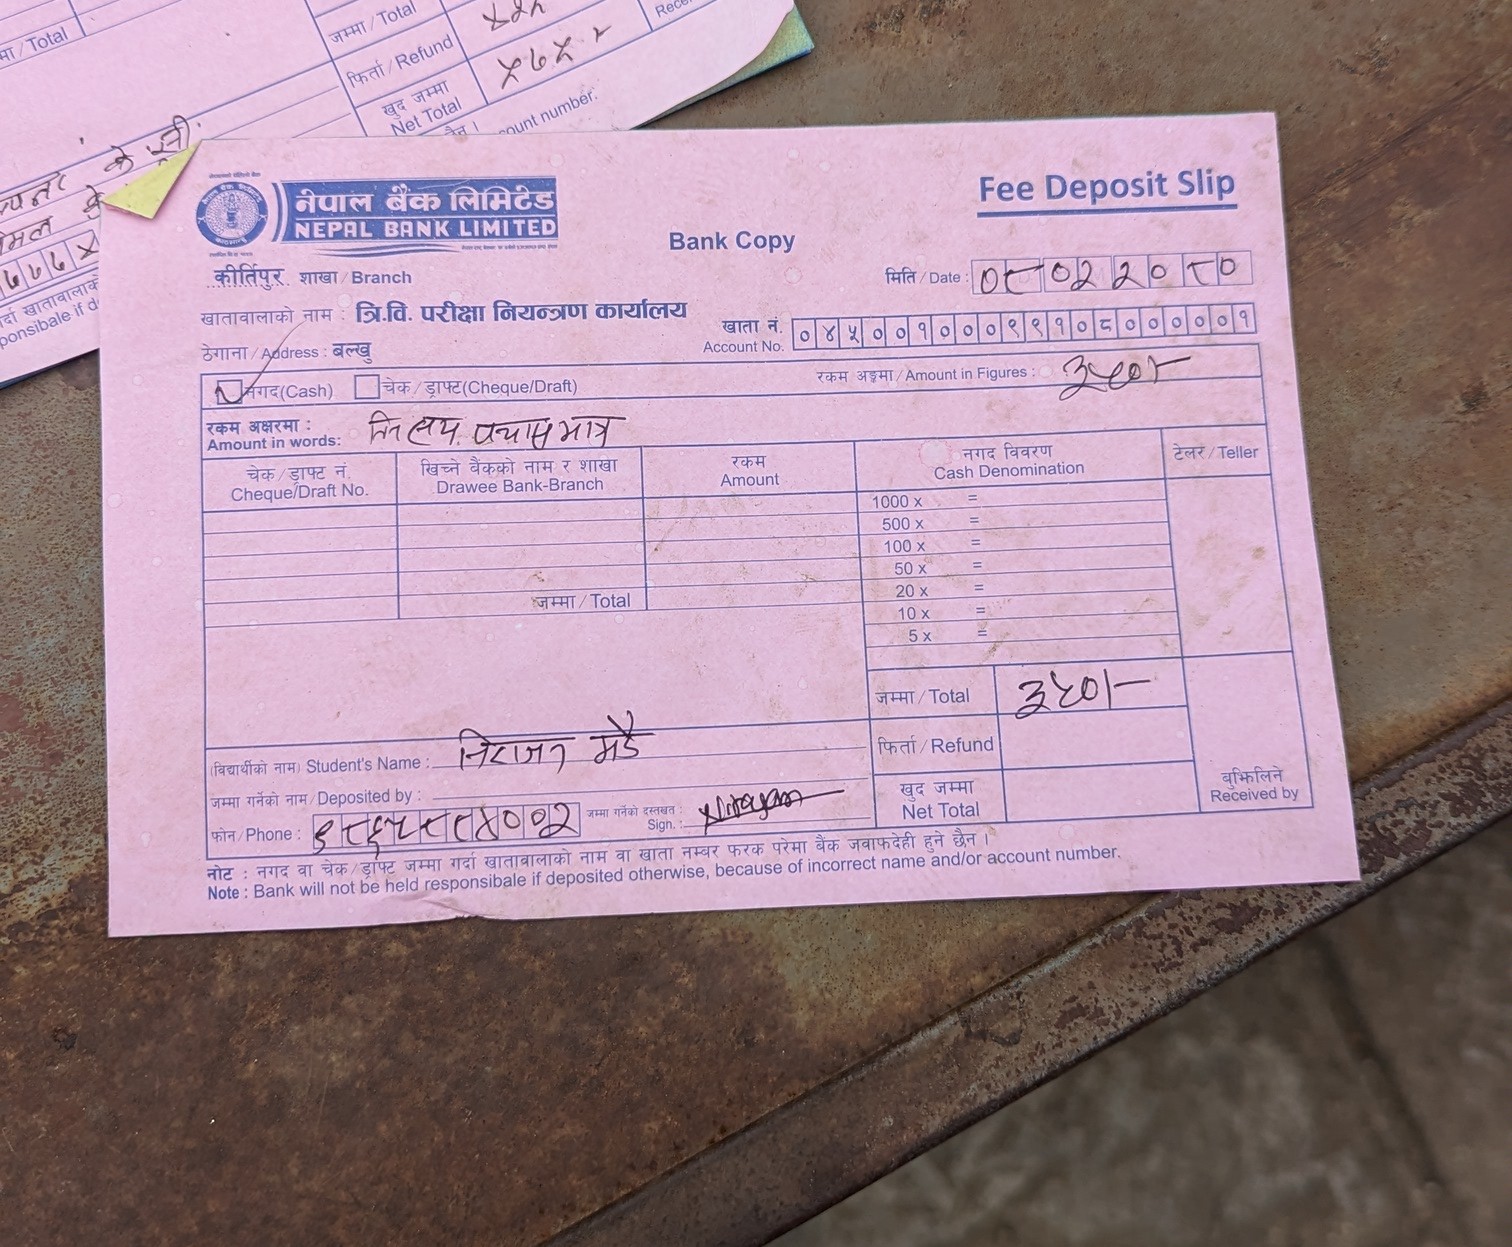 मा / Total
जम्मा / Total
फिर्ता / Refund
खुद जम्मा
Net Total
ount number.
के
नेपाल बैंक लिमिटेड
NEPAL BANK LIMITED
Fee Deposit Slip
Bank Copy
कीर्तिपुर शाखा / Branch
मिति / Date : ०८०२२०८०
खातावालाको नाम : त्रि.वि. परीक्षा नियन्त्रण कार्यालय
खाता नं.
Account No. ०४५००१०००९९१०८०००००१
ठेगाना / Address : बल्खु
नगद(Cash) चेक / ड्राफ्ट(Cheque/Draft)
रकम अङ्कमा / Amount in Figures : ३५०/-
रकम अक्षरमा :
Amount in words: तिन सय पचास मात्र
चेक / ड्राफ्ट नं.
Cheque/Draft No.
खिच्ने बैंकको नाम र शाखा
Drawee Bank-Branch
रकम
Amount
नगद विवरण
Cash Denomination
टेलर / Teller
1000 x =
500 x =
100 x =
50 x =
20 x =
10 x =
5 x =
जम्मा / Total
जम्मा / Total ३५०/-
फिर्ता / Refund
खुद जम्मा
Net Total
बुझिलिने
Received by
(विद्यार्थीको नाम) Student's Name : निराजन मडै
जम्मा गर्नेको नाम / Deposited by :
फोन / Phone :
जम्मा गर्नेको दस्तखत :
Sign. :
नोट : नगद वा चेक / ड्राफ्ट जम्मा गर्दा खातावालाको नाम वा खाता नम्बर फरक परेमा बैंक जवाफदेही हुने छैन ।
Note : Bank will not be held responsibale if deposited otherwise, because of incorrect name and/or account number.